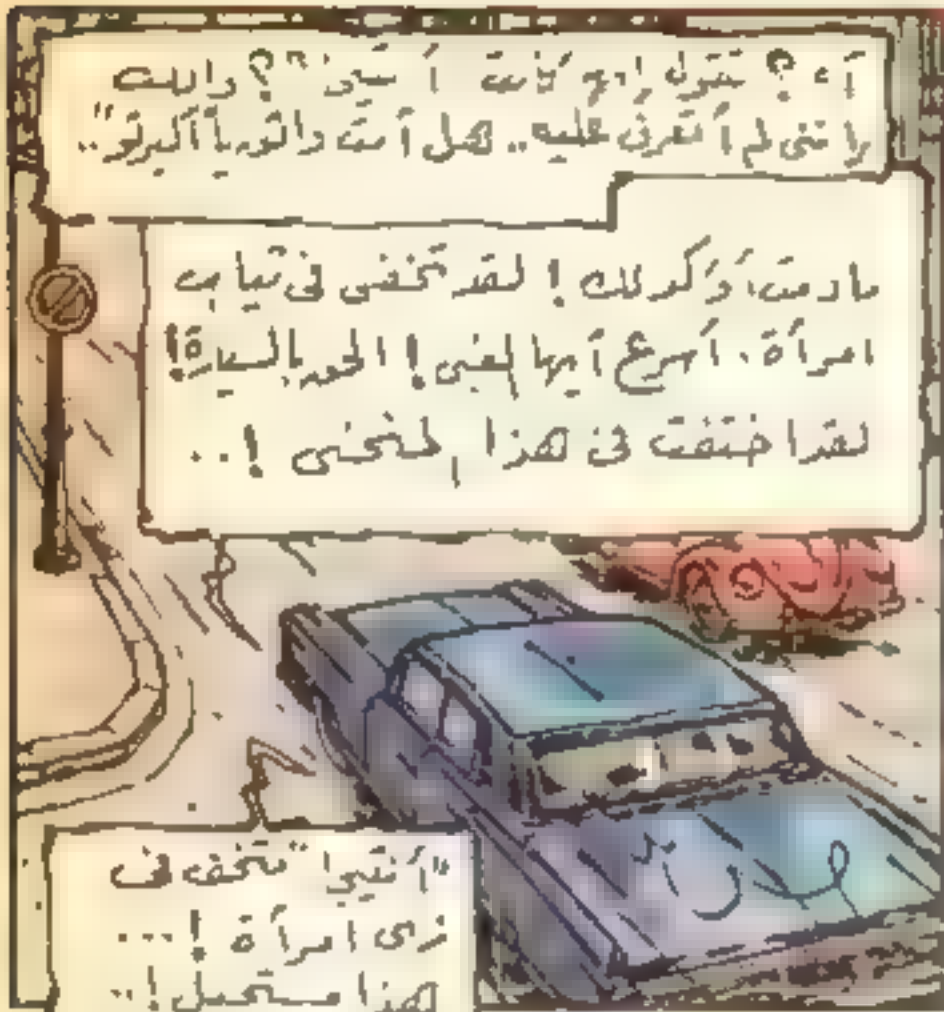 آه ؟ تقول إنه كانت " ؟ ولكنك
لم أتعرف عليه .. هل أنت واثق يا ألبرتو" ..
ما دمت أؤكد لك ! لقد تخفى فى ثياب
امرأة . أسرع أيها الغبى ! الحق بالسيارة !
لقد اختفت فى هذا المنحنى ! ..
متخف فى
زى امرأة ! ...
هذا مستحيل ! ..